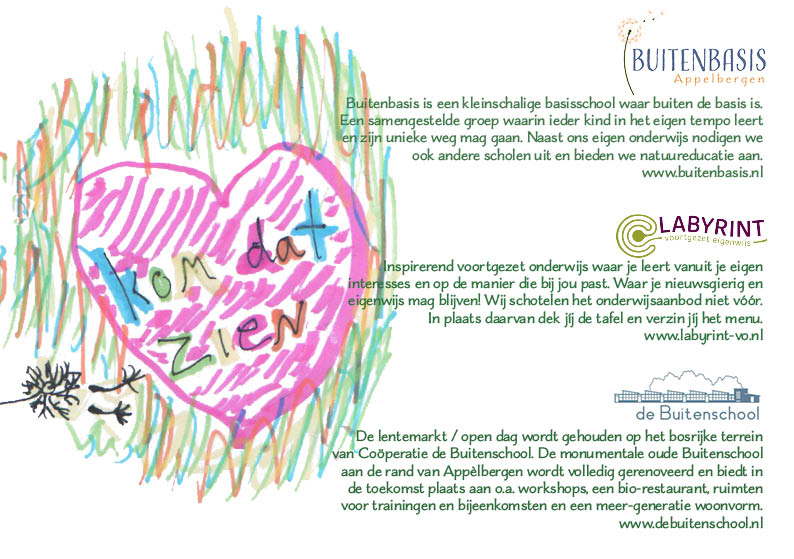 kom dat
zien
BUITENBASIS
Appelbergen
Buitenbasis is een kleinschalige basisschool waar buiten de basis is.
Een samengestelde groep waarin ieder kind in het eigen tempo leert
en zijn unieke weg mag gaan. Naast ons eigen onderwijs nodigen we
ook andere scholen uit en bieden we natuureducatie aan.
www.buitenbasis.nl
LABYRINT
voortgezet eigenwijs
Inspirerend voortgezet onderwijs waar je leert vanuit je eigen
interesses en op de manier die bij jou past. Waar je nieuwsgierig en
eigenwijs mag blijven! Wij schotelen het onderwijsaanbod niet vóór.
In plaats daarvan dek jíj de tafel en verzin jíj het menu.
www.labyrint-vo.nl
de Buitenschool
De lentemarkt / open dag wordt gehouden op het bosrijke terrein
van Coöperatie de Buitenschool. De monumentale oude Buitenschool
aan de rand van Appèlbergen wordt volledig gerenoveerd en biedt in
de toekomst plaats aan o.a. workshops, een bio-restaurant, ruimten
voor trainingen en bijeenkomsten en een meer-generatie woonvorm.
www.debuitenschool.nl